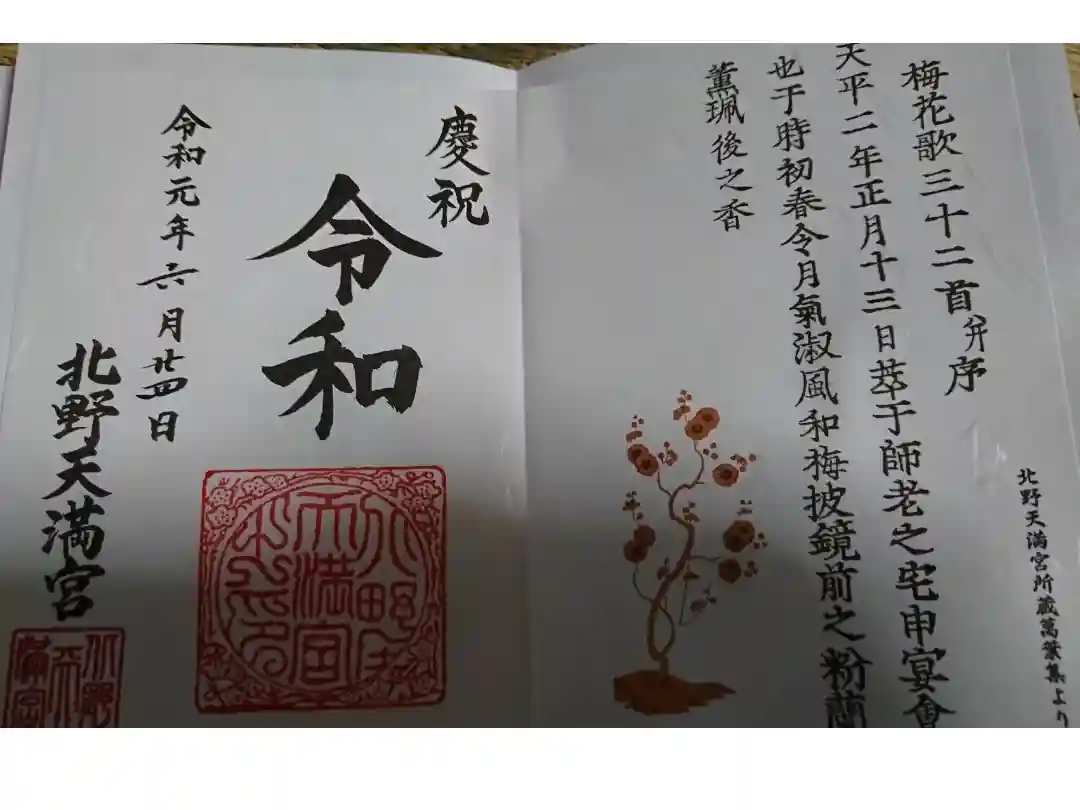 北野天満宮所蔵萬葉集より
梅花歌三十二首并序
天平二年正月十三日萃于師老之宅申宴會
也于時初春令月氣淑風和梅披鏡前之粉蘭
薫珮後之香
慶祝
令和
北野
天満宮
之印
令和元年六月廿四日
北野天満宮
北野
天
満宮